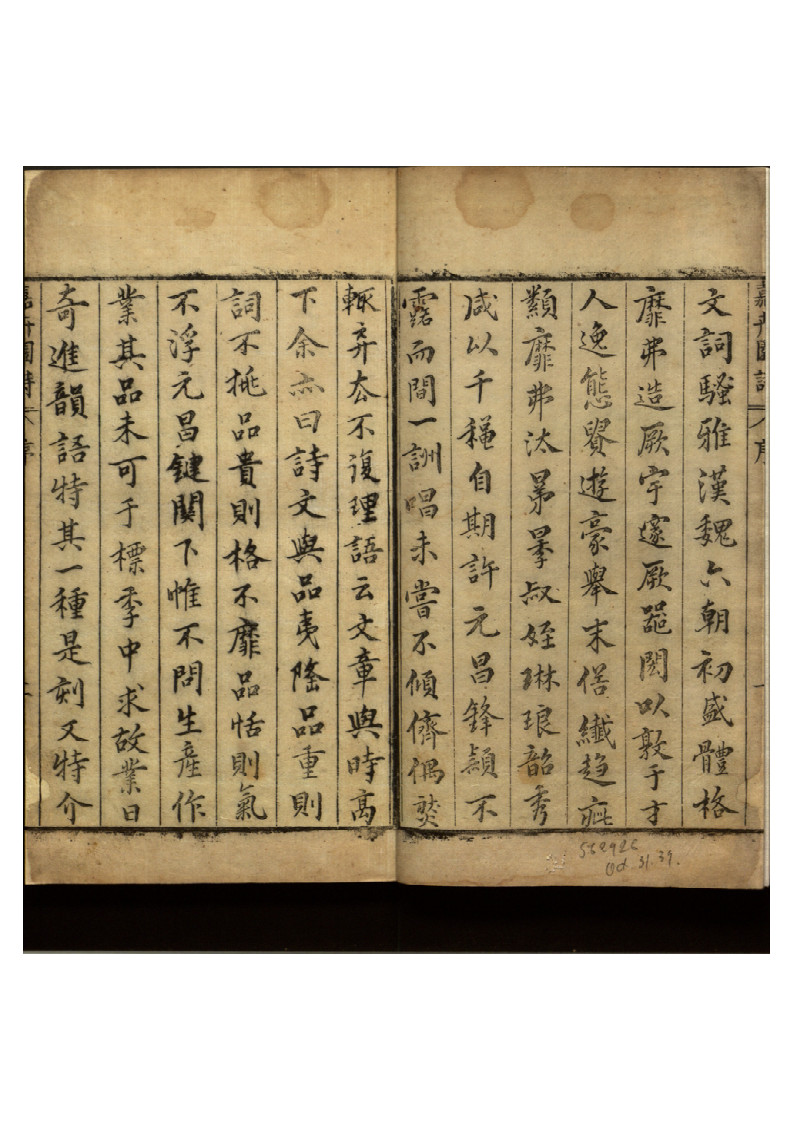 文詞騷雅漢魏六朝初盛體格
靡弗造厥宇邃厥䦨以敦于才
人逸態賢遊豪舉末俗纖趨疵
纇靡弗汰昴季叔姪琳琅韶秀
咸以千秋自期許元昌鋒穎不
露而間一詶唱未嘗不傾儕偶
輒弃去不復理語云文章與時高
下余亦曰詩文與品夷隆品重則
詞不挑品貴則格不靡品恬則氣
不浮元昌鍵關下帷不問生產作
業其品未可于標季中求故業日
奇進韻語特其一種是刻又特介